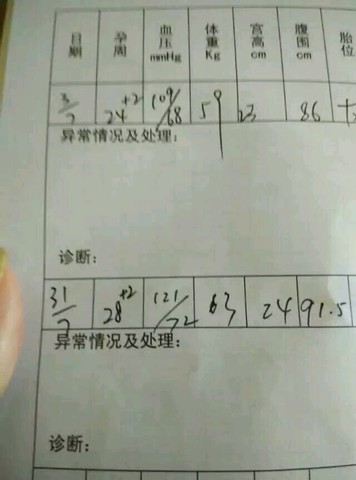 日期 孕周 血压mmHg 体重Kg 宫高cm 腹围cm 胎位
3/7 24+2 109/68 59 23 86
异常情况及处理:
诊断:
31/7 28+2 121/72 63 24 91.5
异常情况及处理:
诊断: